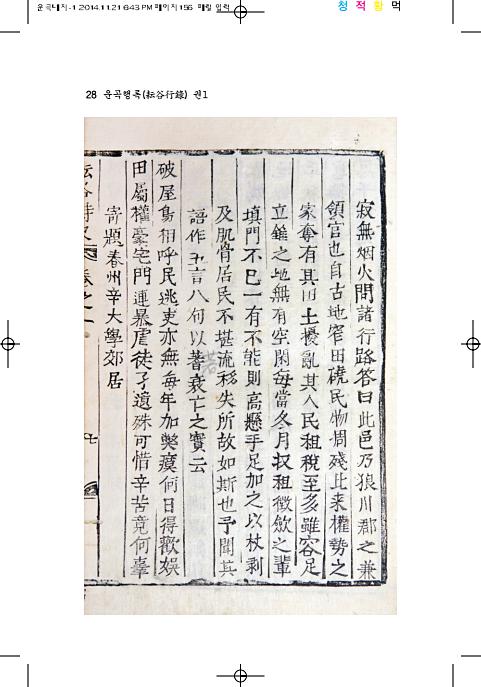 운곡대지-1 2014.11.21 6:43 PM 페이지156 매킬 입력
청 적 황 먹
28 운곡행록(耘谷行錄) 권1
寂無烟火問諸行路答曰此邑乃狼川郡之兼
領官也自古地窄田磽民物凋殘比来權勢之
家奪有其田土擾亂其人民租稅至多雖容足
立錐之地無有空閑每當冬月収租徵斂之輩
填門不已一有不能則高懸手足加之以杖剥
及肌骨居民不堪流移失所故如斯也予聞其
語作五言八句以著衰亡之實云
破屋鳥相呼民逃吏亦無每年加獘瘼何日得歡娱
田屬權豪宅門連暴虐徒孑遺殊可惜辛苦竟何辜
寄題春州辛大學郊居
耘谷詩史 卷之一
七